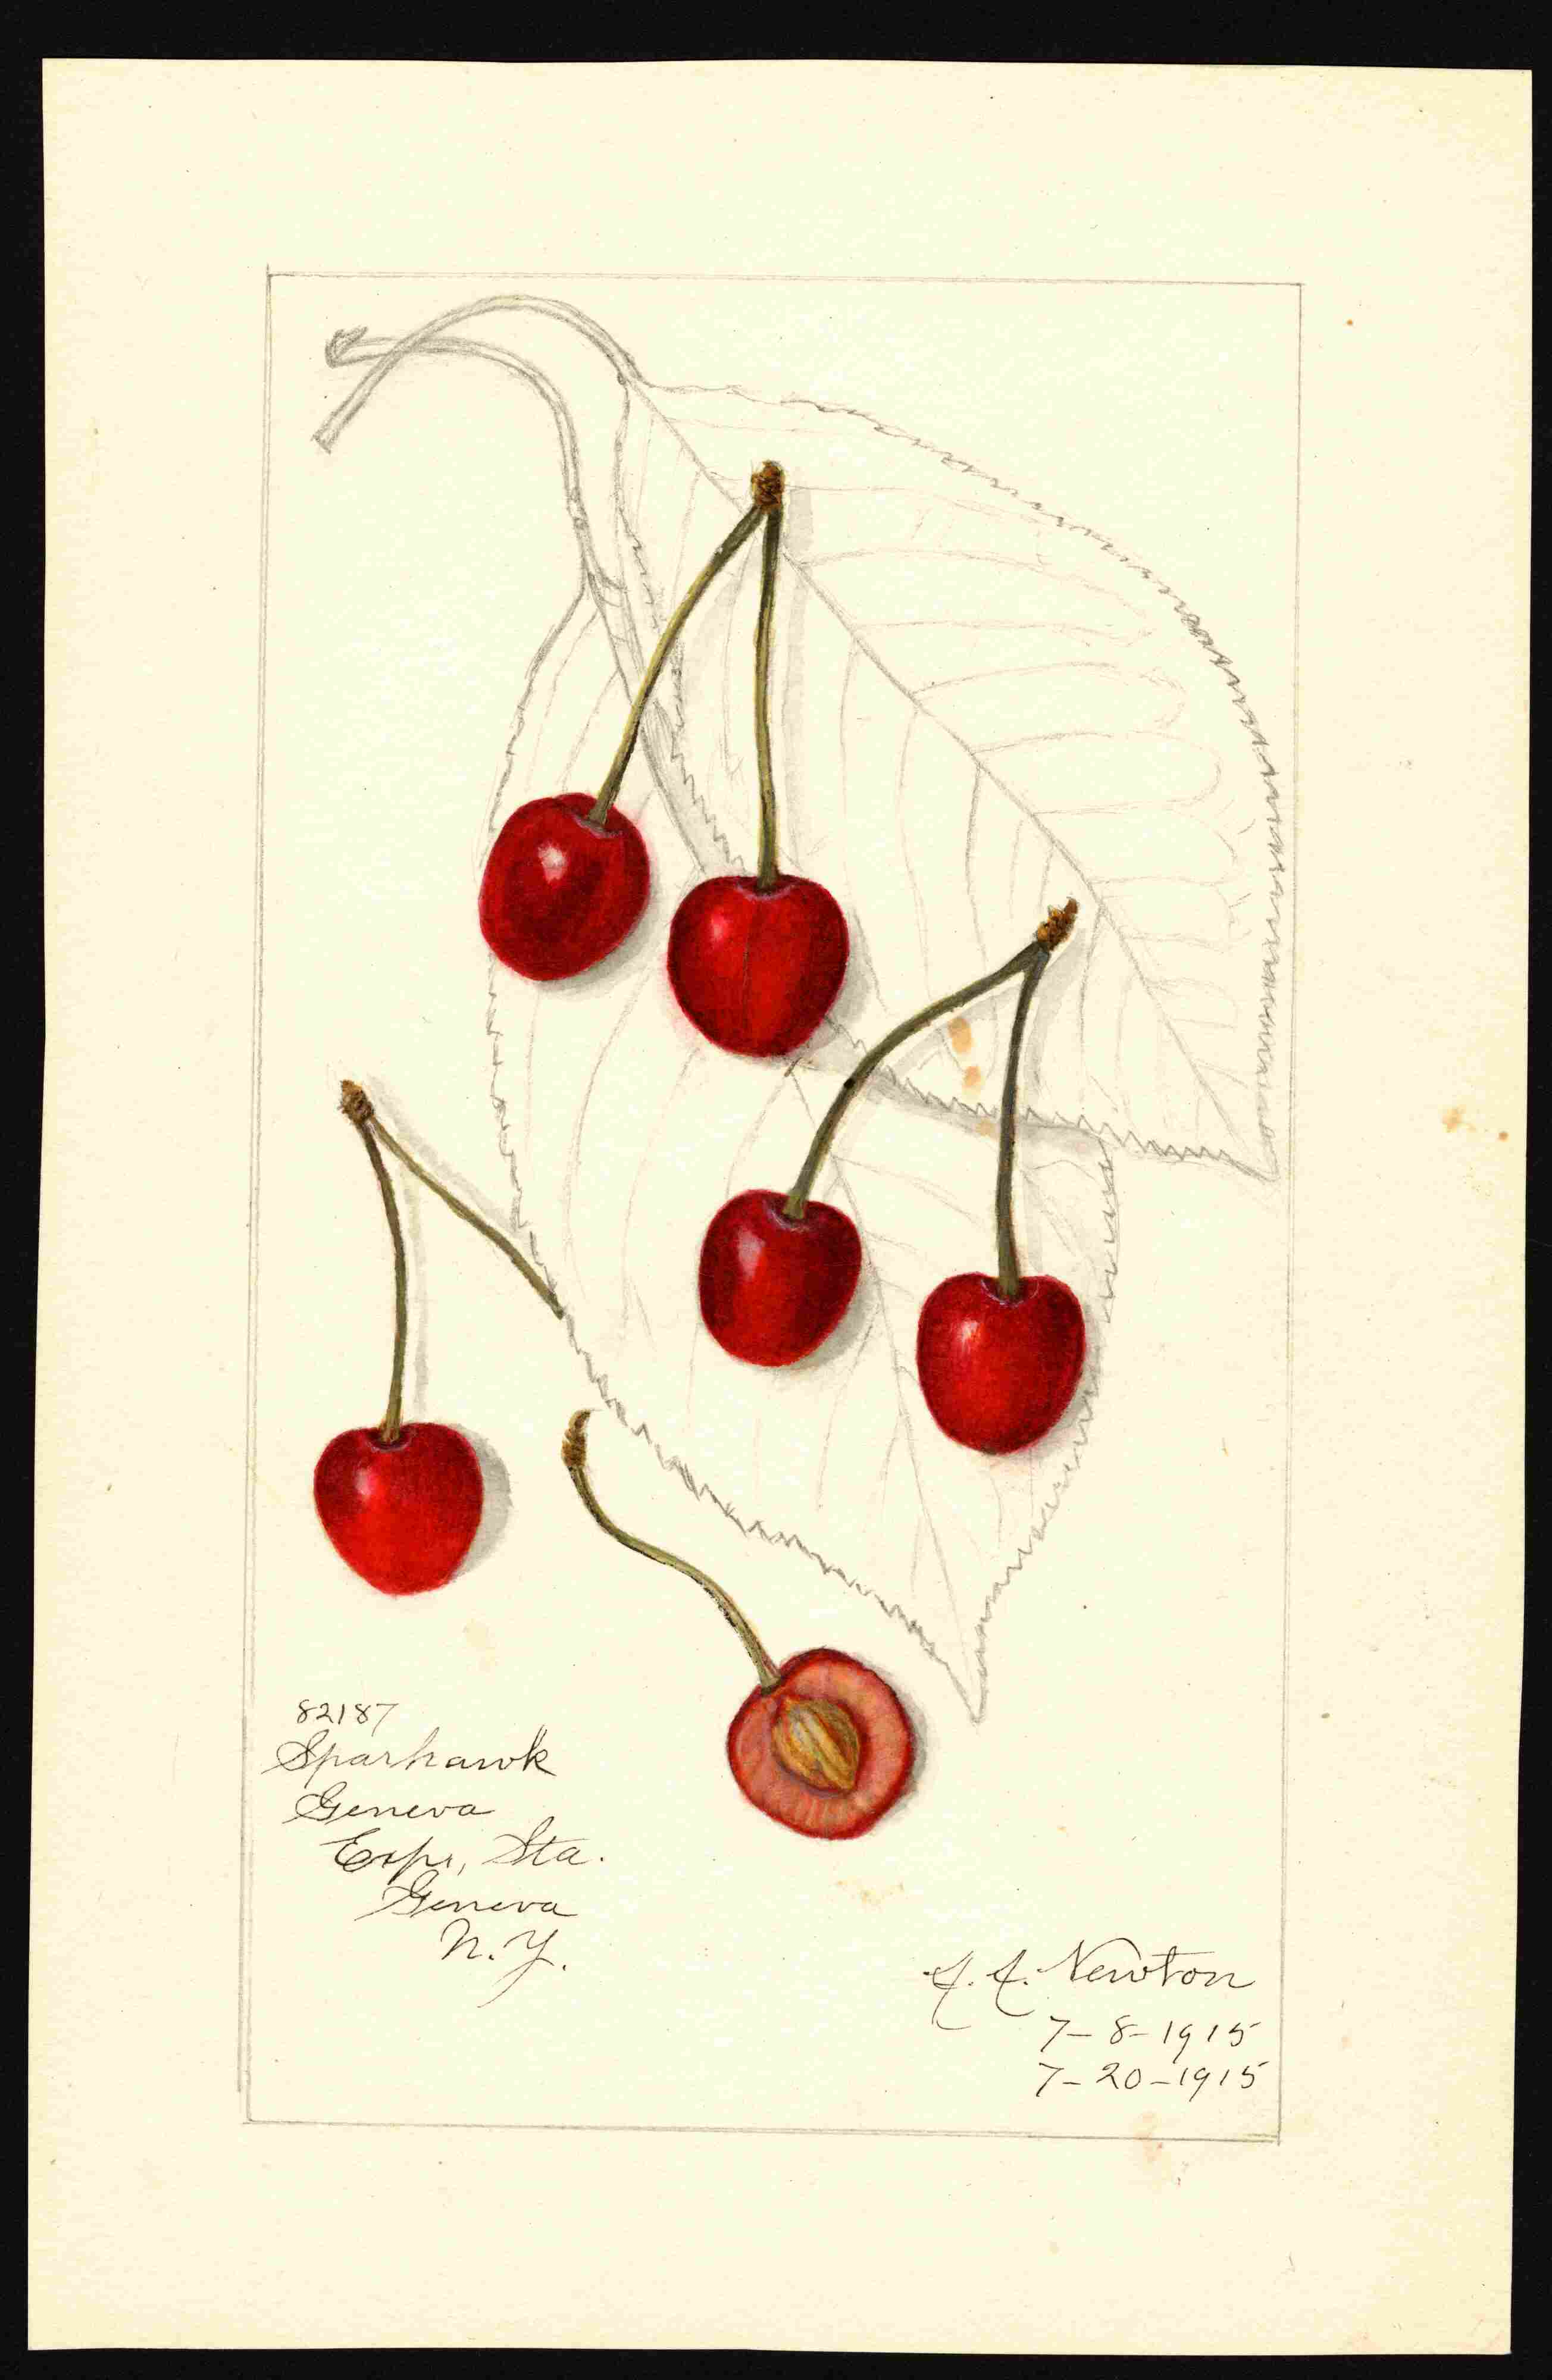 82187
Sparhawk
Geneva
Expr, Sta.
Geneva
N. Y.
A. A. Newton
7-8-1915
7-20-1915